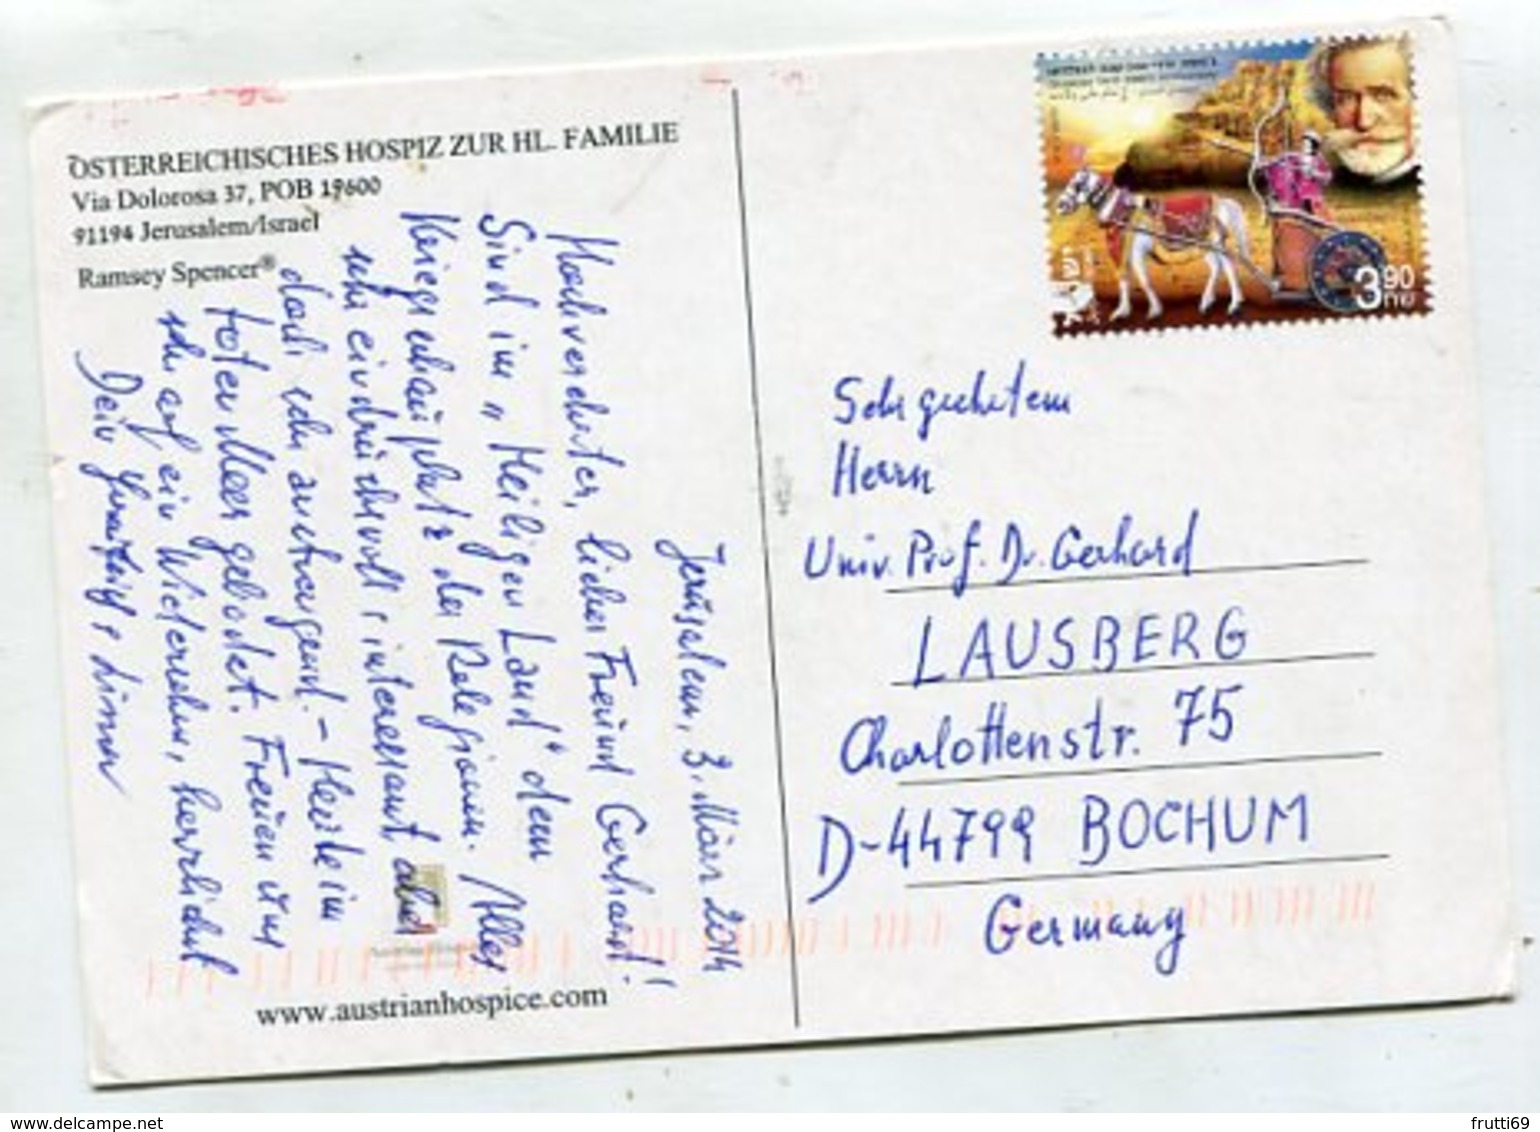 ÖSTERREICHISCHES HOSPIZ ZUR HL. FAMILIE
Via Dolorosa 37, POB 19600
91194 Jerusalem/Israel
Ramsey Spencer®
Jerusalem, 3. März 2014
Hochverehrter, lieber Freund Gerhard!
Sind im „Heiligen Land" dem
Kriegsschauplatz der Religionen. Alles
sehr eindrucksvoll, interessant, aber
doch sehr anstrengend. - Heute im
toten Meer gebadet. Freuen uns
sehr auf ein Wiedersehen, herzlichst
Dein
www.austrianhospice.com
3.90
Sehr geehrtem
Herrn
Univ. Prof. Dr. Gerhard
LAUSBERG
Charlottenstr. 75
D-44799 BOCHUM
Germany
www.delcampe.net
frutti69